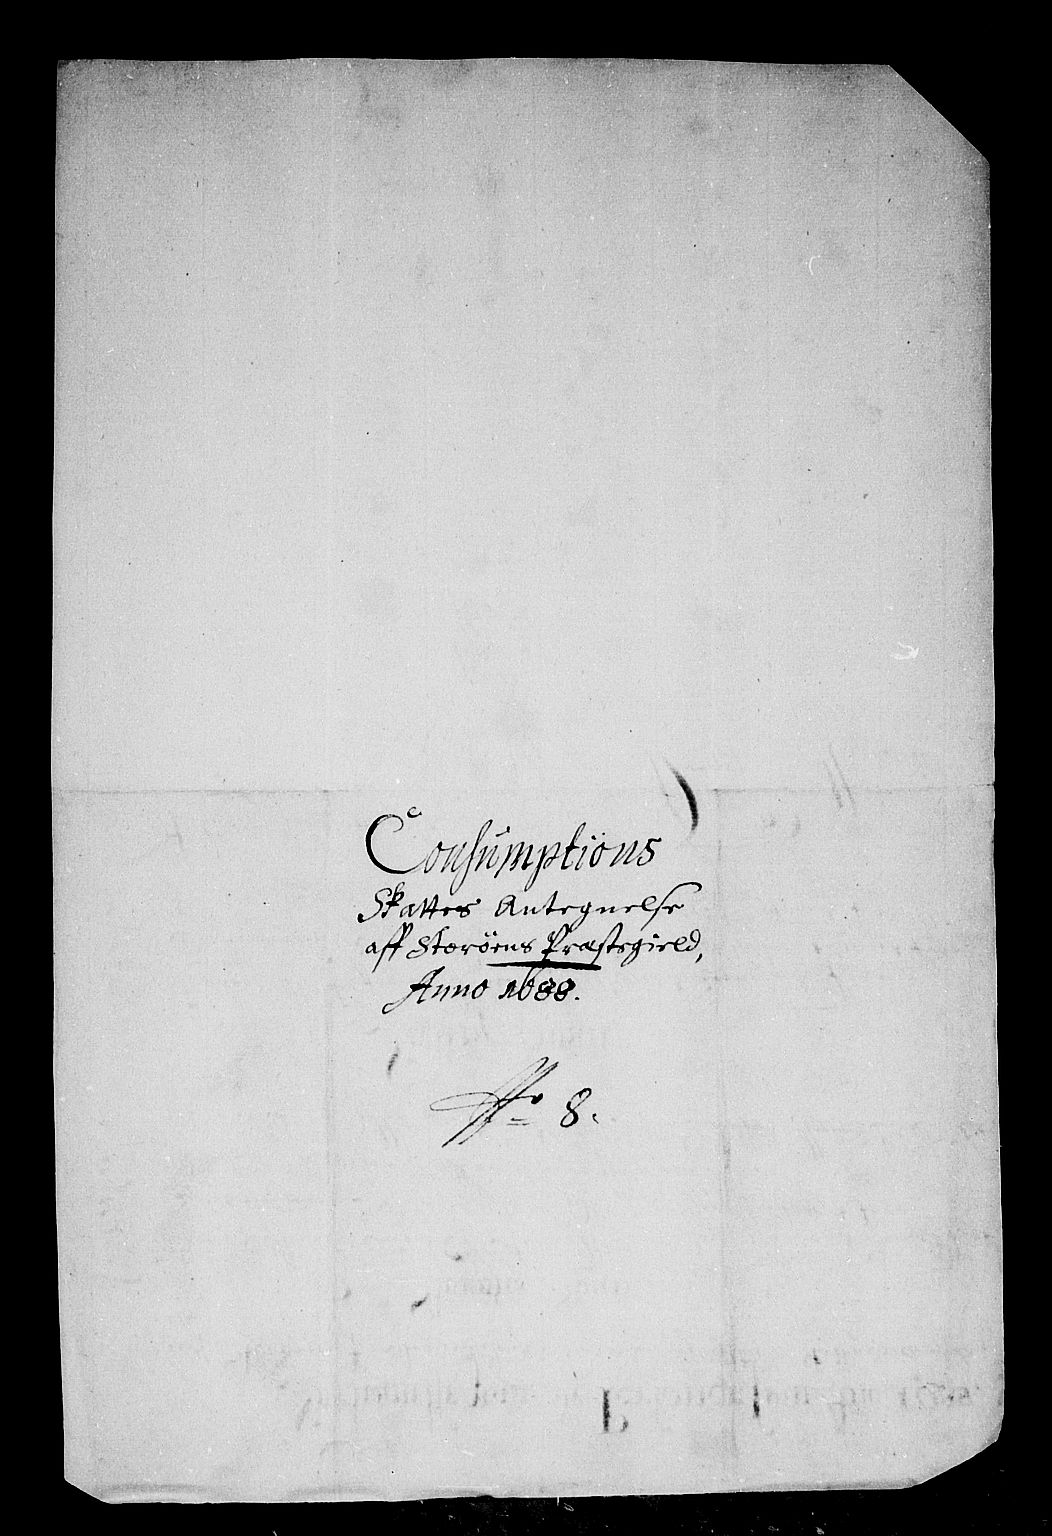 Consumptions
Skattes Antegnelse
aff Storøens Præstegield,
Anno 1688.
No 8.